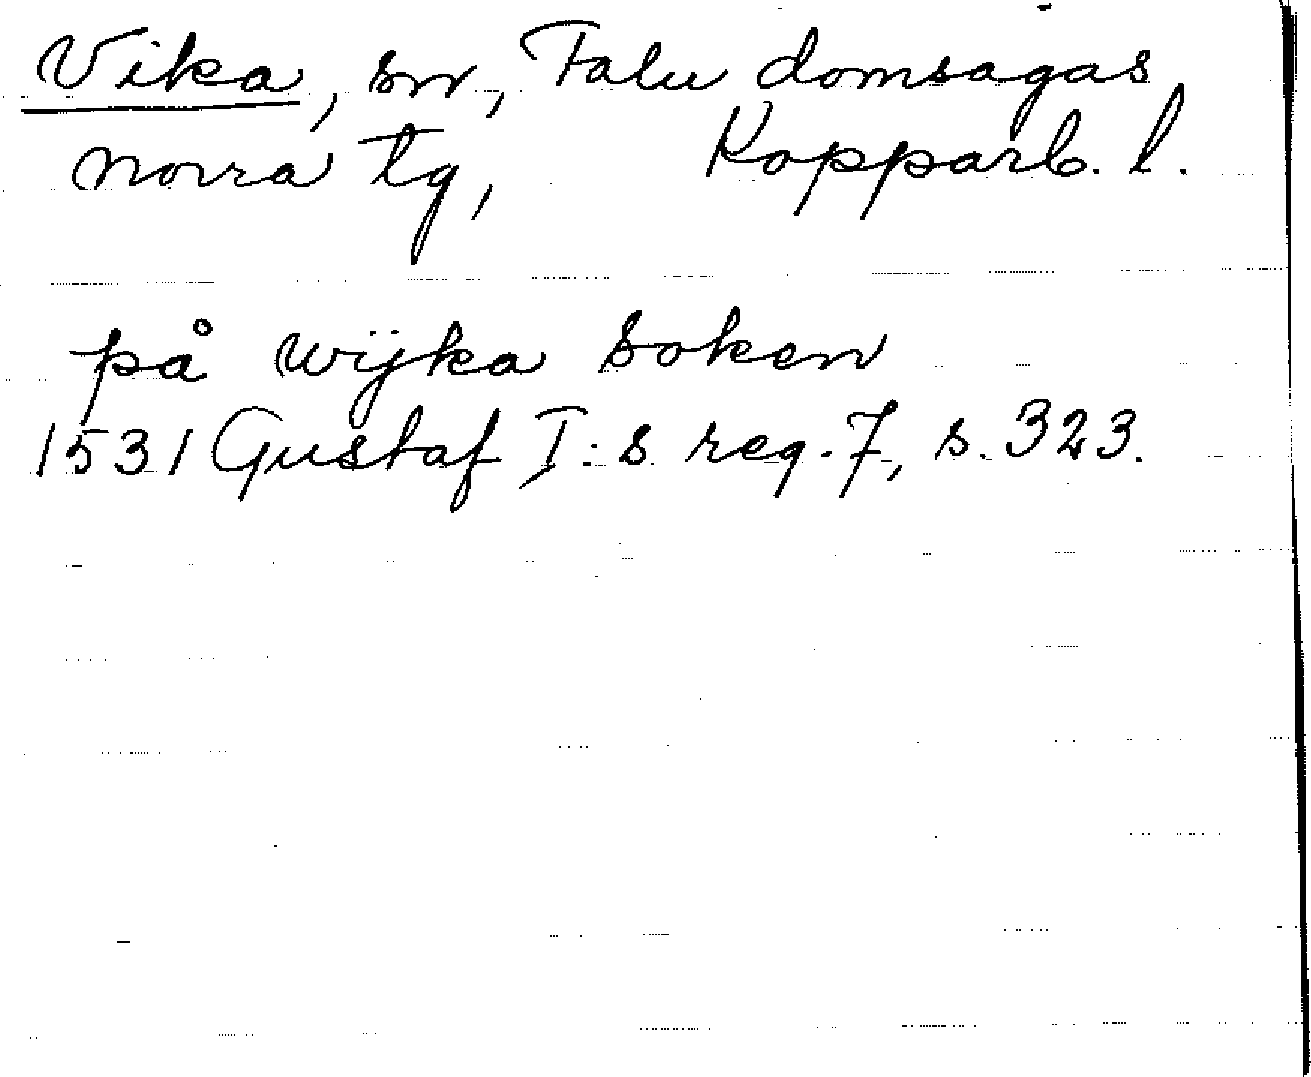 Vika, sn, Falu domsagas
norra tg, Kopparb. l.
på wijka Soken
1531 Gustaf I:s reg. 7, s. 323.